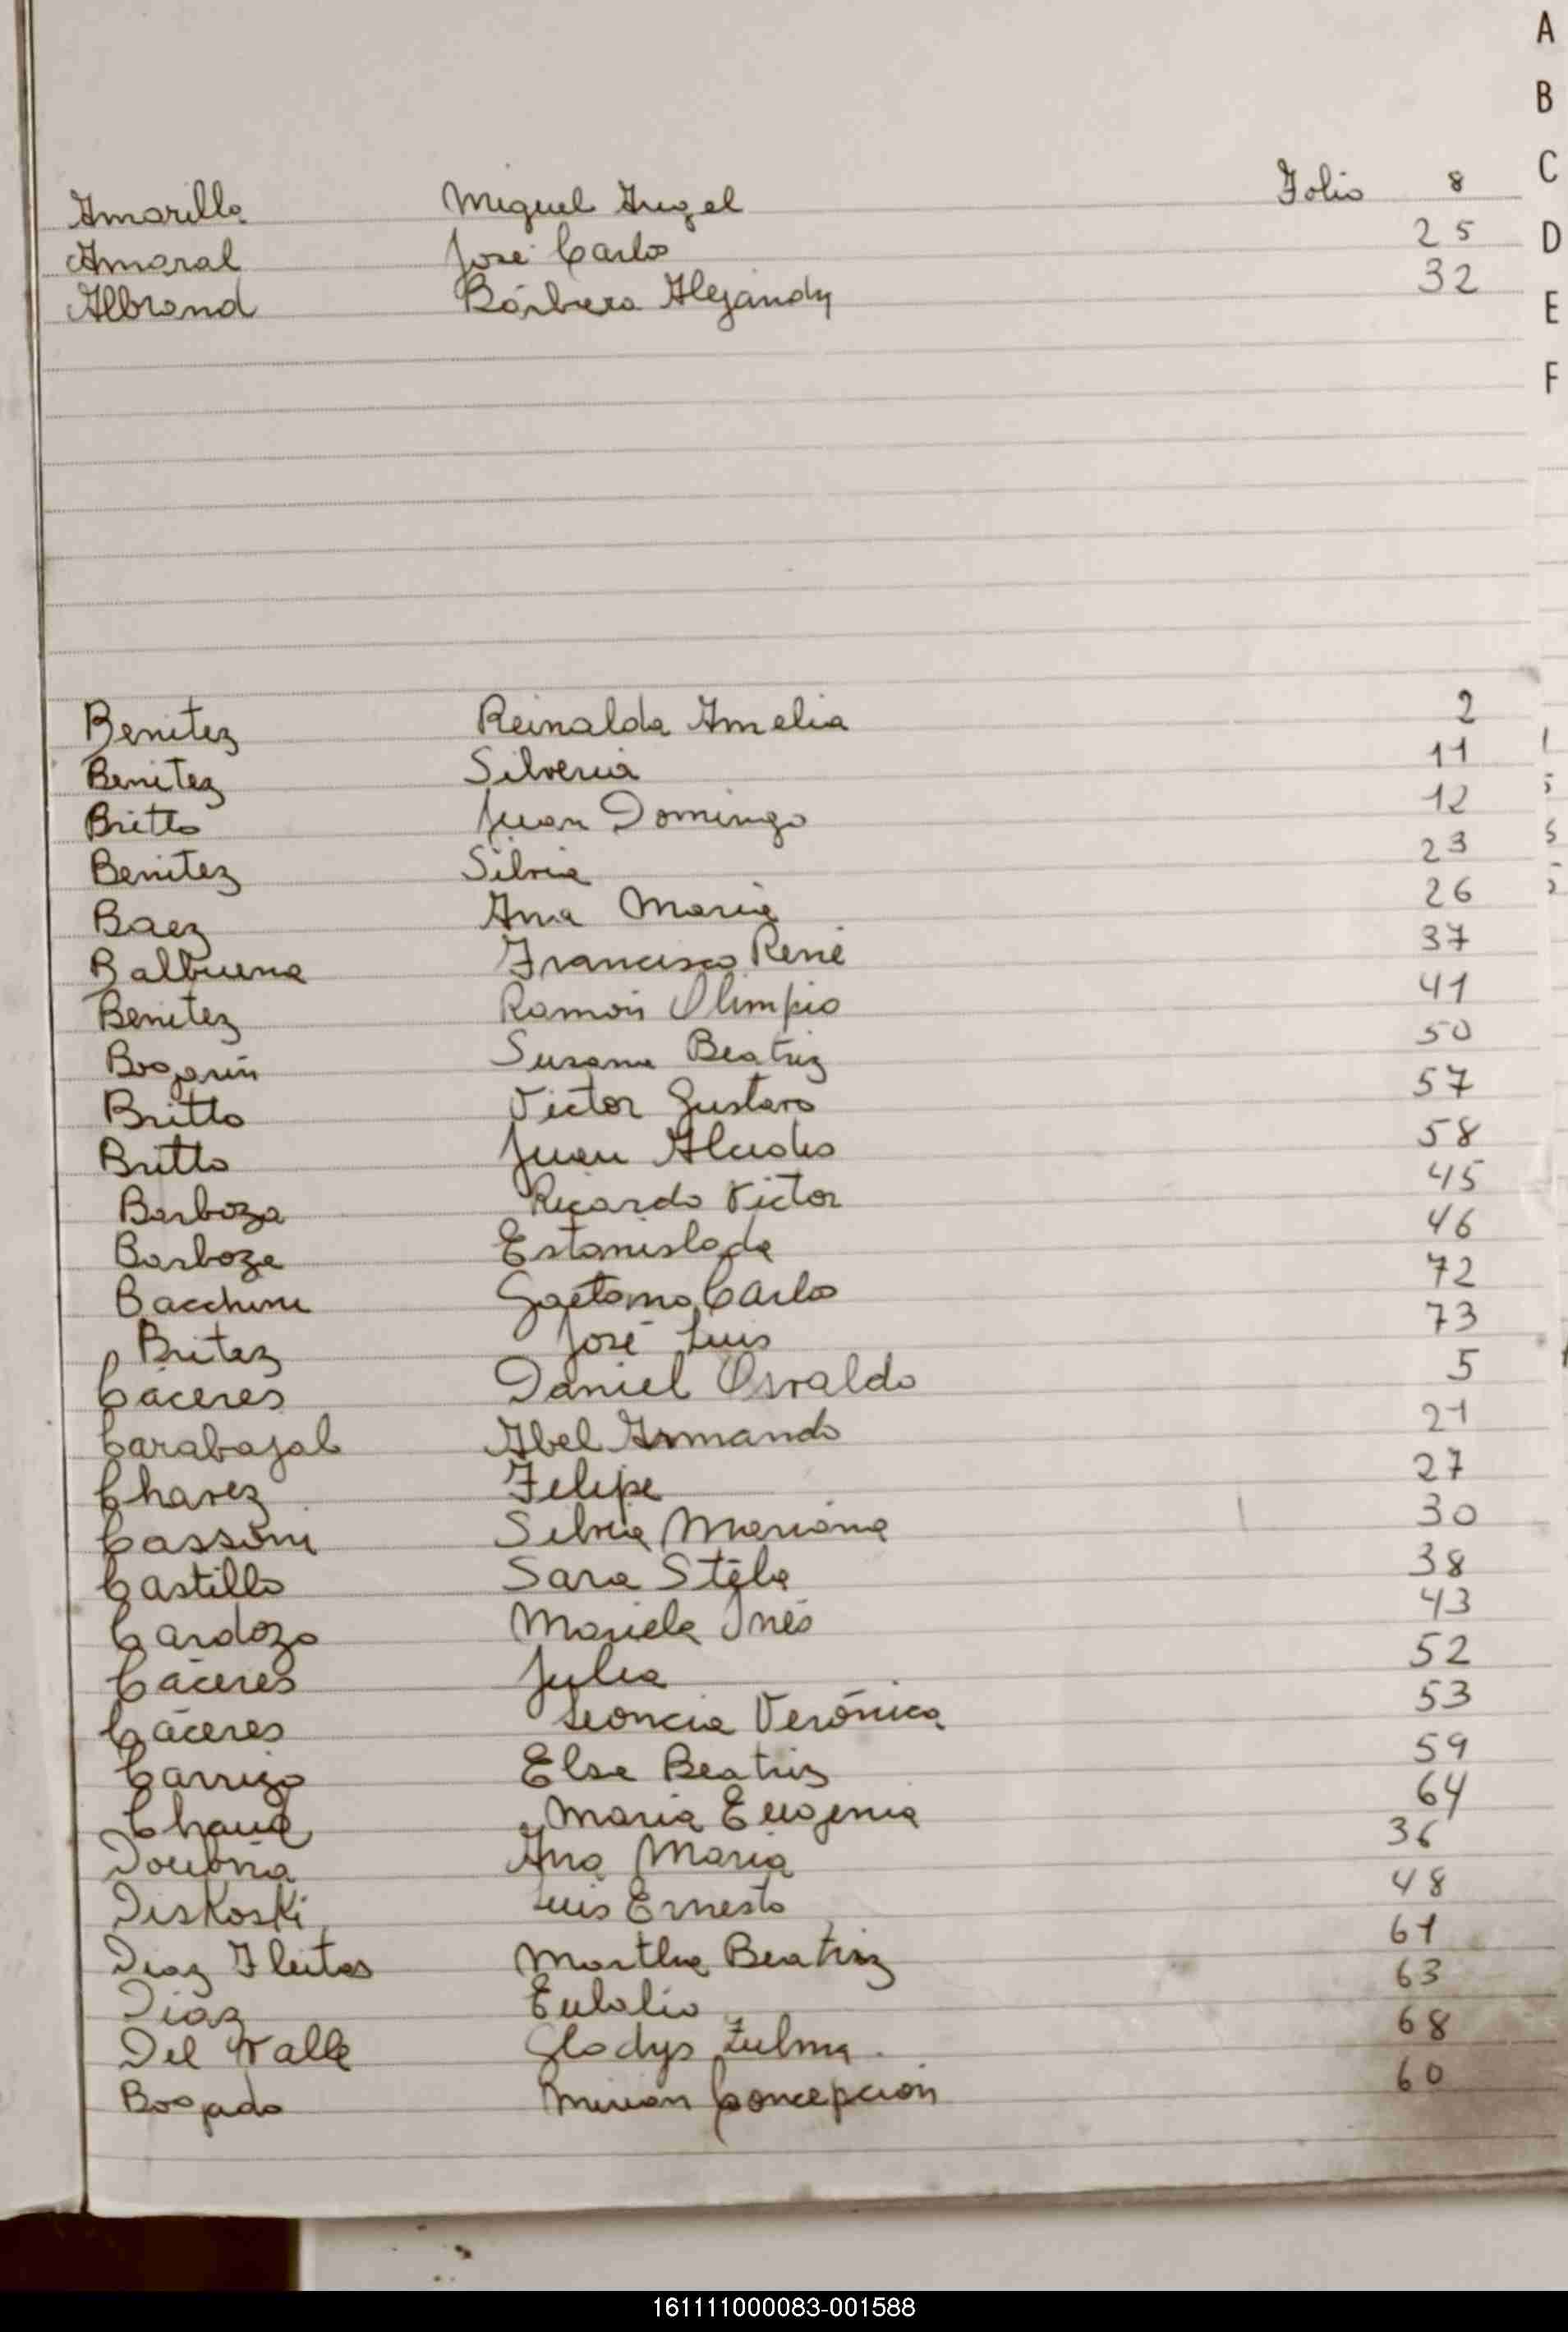 A
B
C
D
E
F
Amarilla Miguel Angel Folio 8
Amaral José Carlos 25
Albrand Bárbara Alejandy 32
Benitez Reinalda Amelia 2
Benitez Silveria 11
Britto Juan Domingo 12
Benitez Silvia 23
Baez Ana Maria 26
Balbuena Francisco René 37
Benitez Ramón Olimpio 41
Bogarin Susana Beatriz 50
Britto Victor Gustavo 57
Britto Juan Alcides 58
Barboza Ricardo Victor 45
Barboza Estanislada 46
Bacchini Gaetano Carlo 72
Britez José Luis 73
Cáceres Daniel Osvaldo 5
Carabajal Abel Armando 21
Chavez Felipe 27
Cassoni Silvia Mariana 30
Castillo Sara Stela 38
Cardozo Mariela Inés 43
Cáceres Julia 52
Cáceres Leoncia Verónica 53
Carrizo Elsa Beatriz 59
Maria Eugenia 64
Ana Maria 36
Diskoski Luis Ernesto 48
Diaz Fleitas Martha Beatriz 61
Diaz Eulalio 63
Del Valle Gladys Zulma 68
Bogado Mirian Concepción 60
161111000083-001588